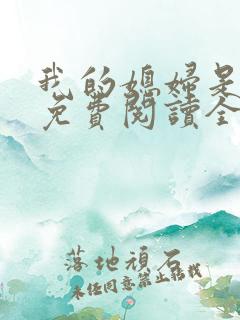 我的媳婦是
免費閱讀全
落地頑石
未经同意禁止转载